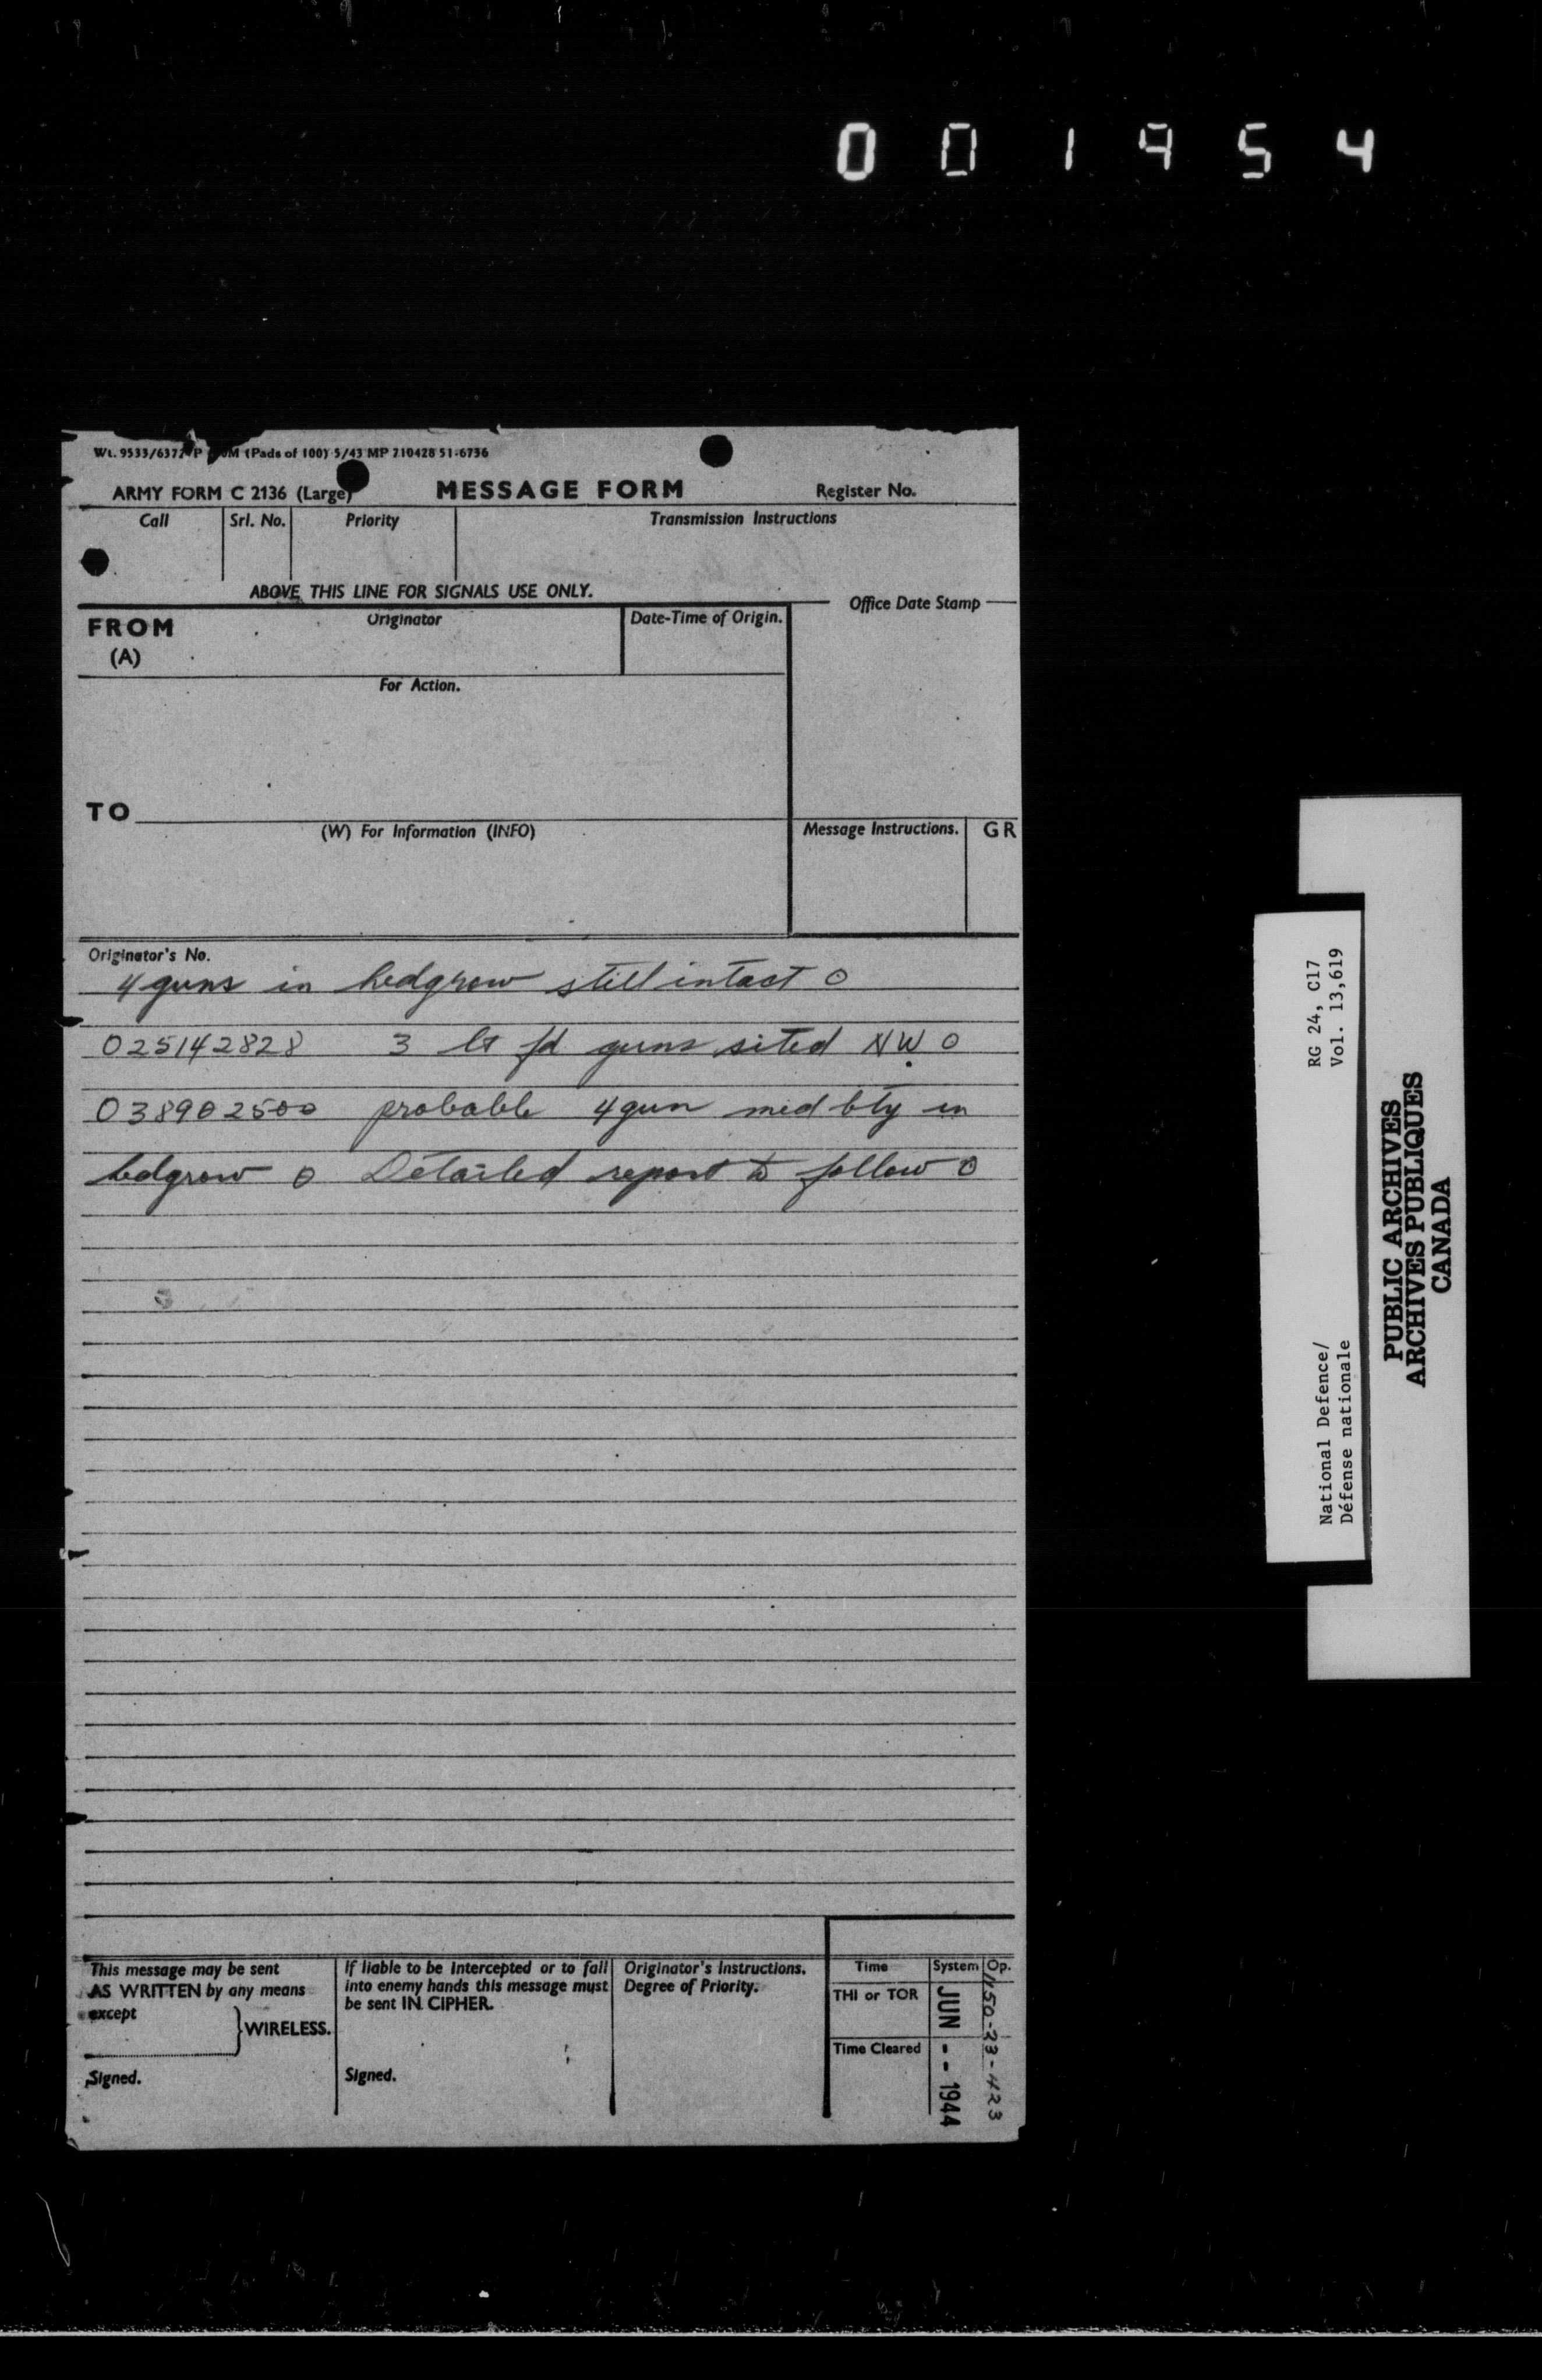 001954
Wt. 9533/6372 P M (Pads of 100) 5/43 MP 210428 51-6736
ARMY FORM C 2136 (Large) MESSAGE FORM Register No.
Call Srl. No. Priority Transmission Instructions
ABOVE THIS LINE FOR SIGNALS USE ONLY.
Office Date Stamp
FROM Originator Date-Time of Origin.
(A)
For Action.
TO
(W) For Information (INFO) Message Instructions. GR
Originator's No.
4 guns in hedgrow still intact O
025142828 3 lt fd guns sited NW O
038902500 probable 4 gun med bty in
hedgrow O Detailed report to follow O
This message may be sent
AS WRITTEN by any means
except
WIRELESS.
Signed.
If liable to be intercepted or to fall
into enemy hands this message must
be sent IN CIPHER.
Signed.
Originator's Instructions.
Degree of Priority.
Time System Op.
THI or TOR
Time Cleared
JUN -- 1944
1150-23-423
RG 24, C17
Vol. 13,619
National Defence/
Défense nationale
PUBLIC ARCHIVES
ARCHIVES PUBLIQUES
CANADA